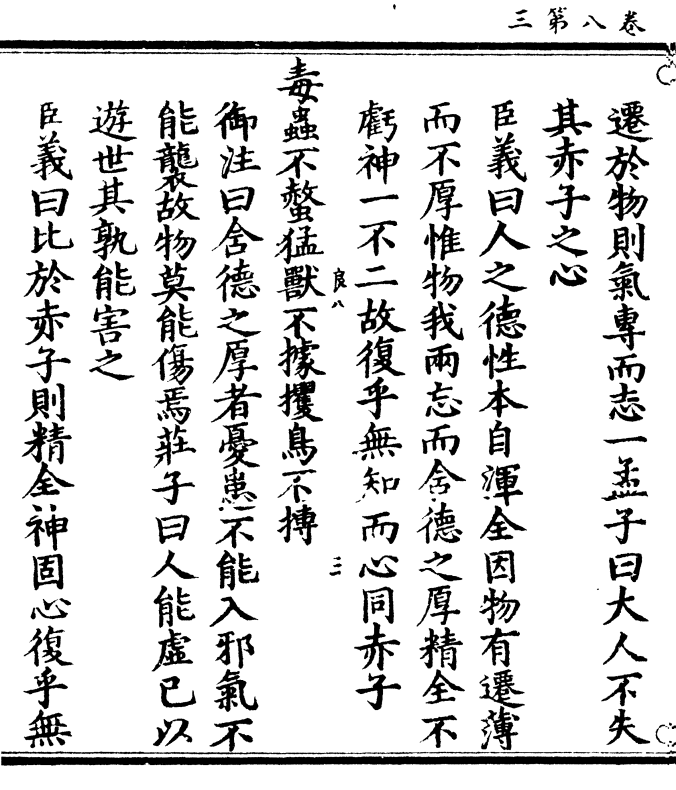 卷八第三
遷於物則氣專而志一孟子曰大人不失
其赤子之心
臣義曰人之德性本自渾全因物有遷薄
而不厚惟物我兩忘而含德之厚精全不
虧神一不二故復乎無知而心同赤子
良八
三
毒蟲不螫猛獸不據攫鳥不搏
御注曰含德之厚者憂患不能入邪氣不
能襲故物莫能傷焉莊子曰人能虛已以
遊世其孰能害之
臣義曰比於赤子則精全神固心復乎無